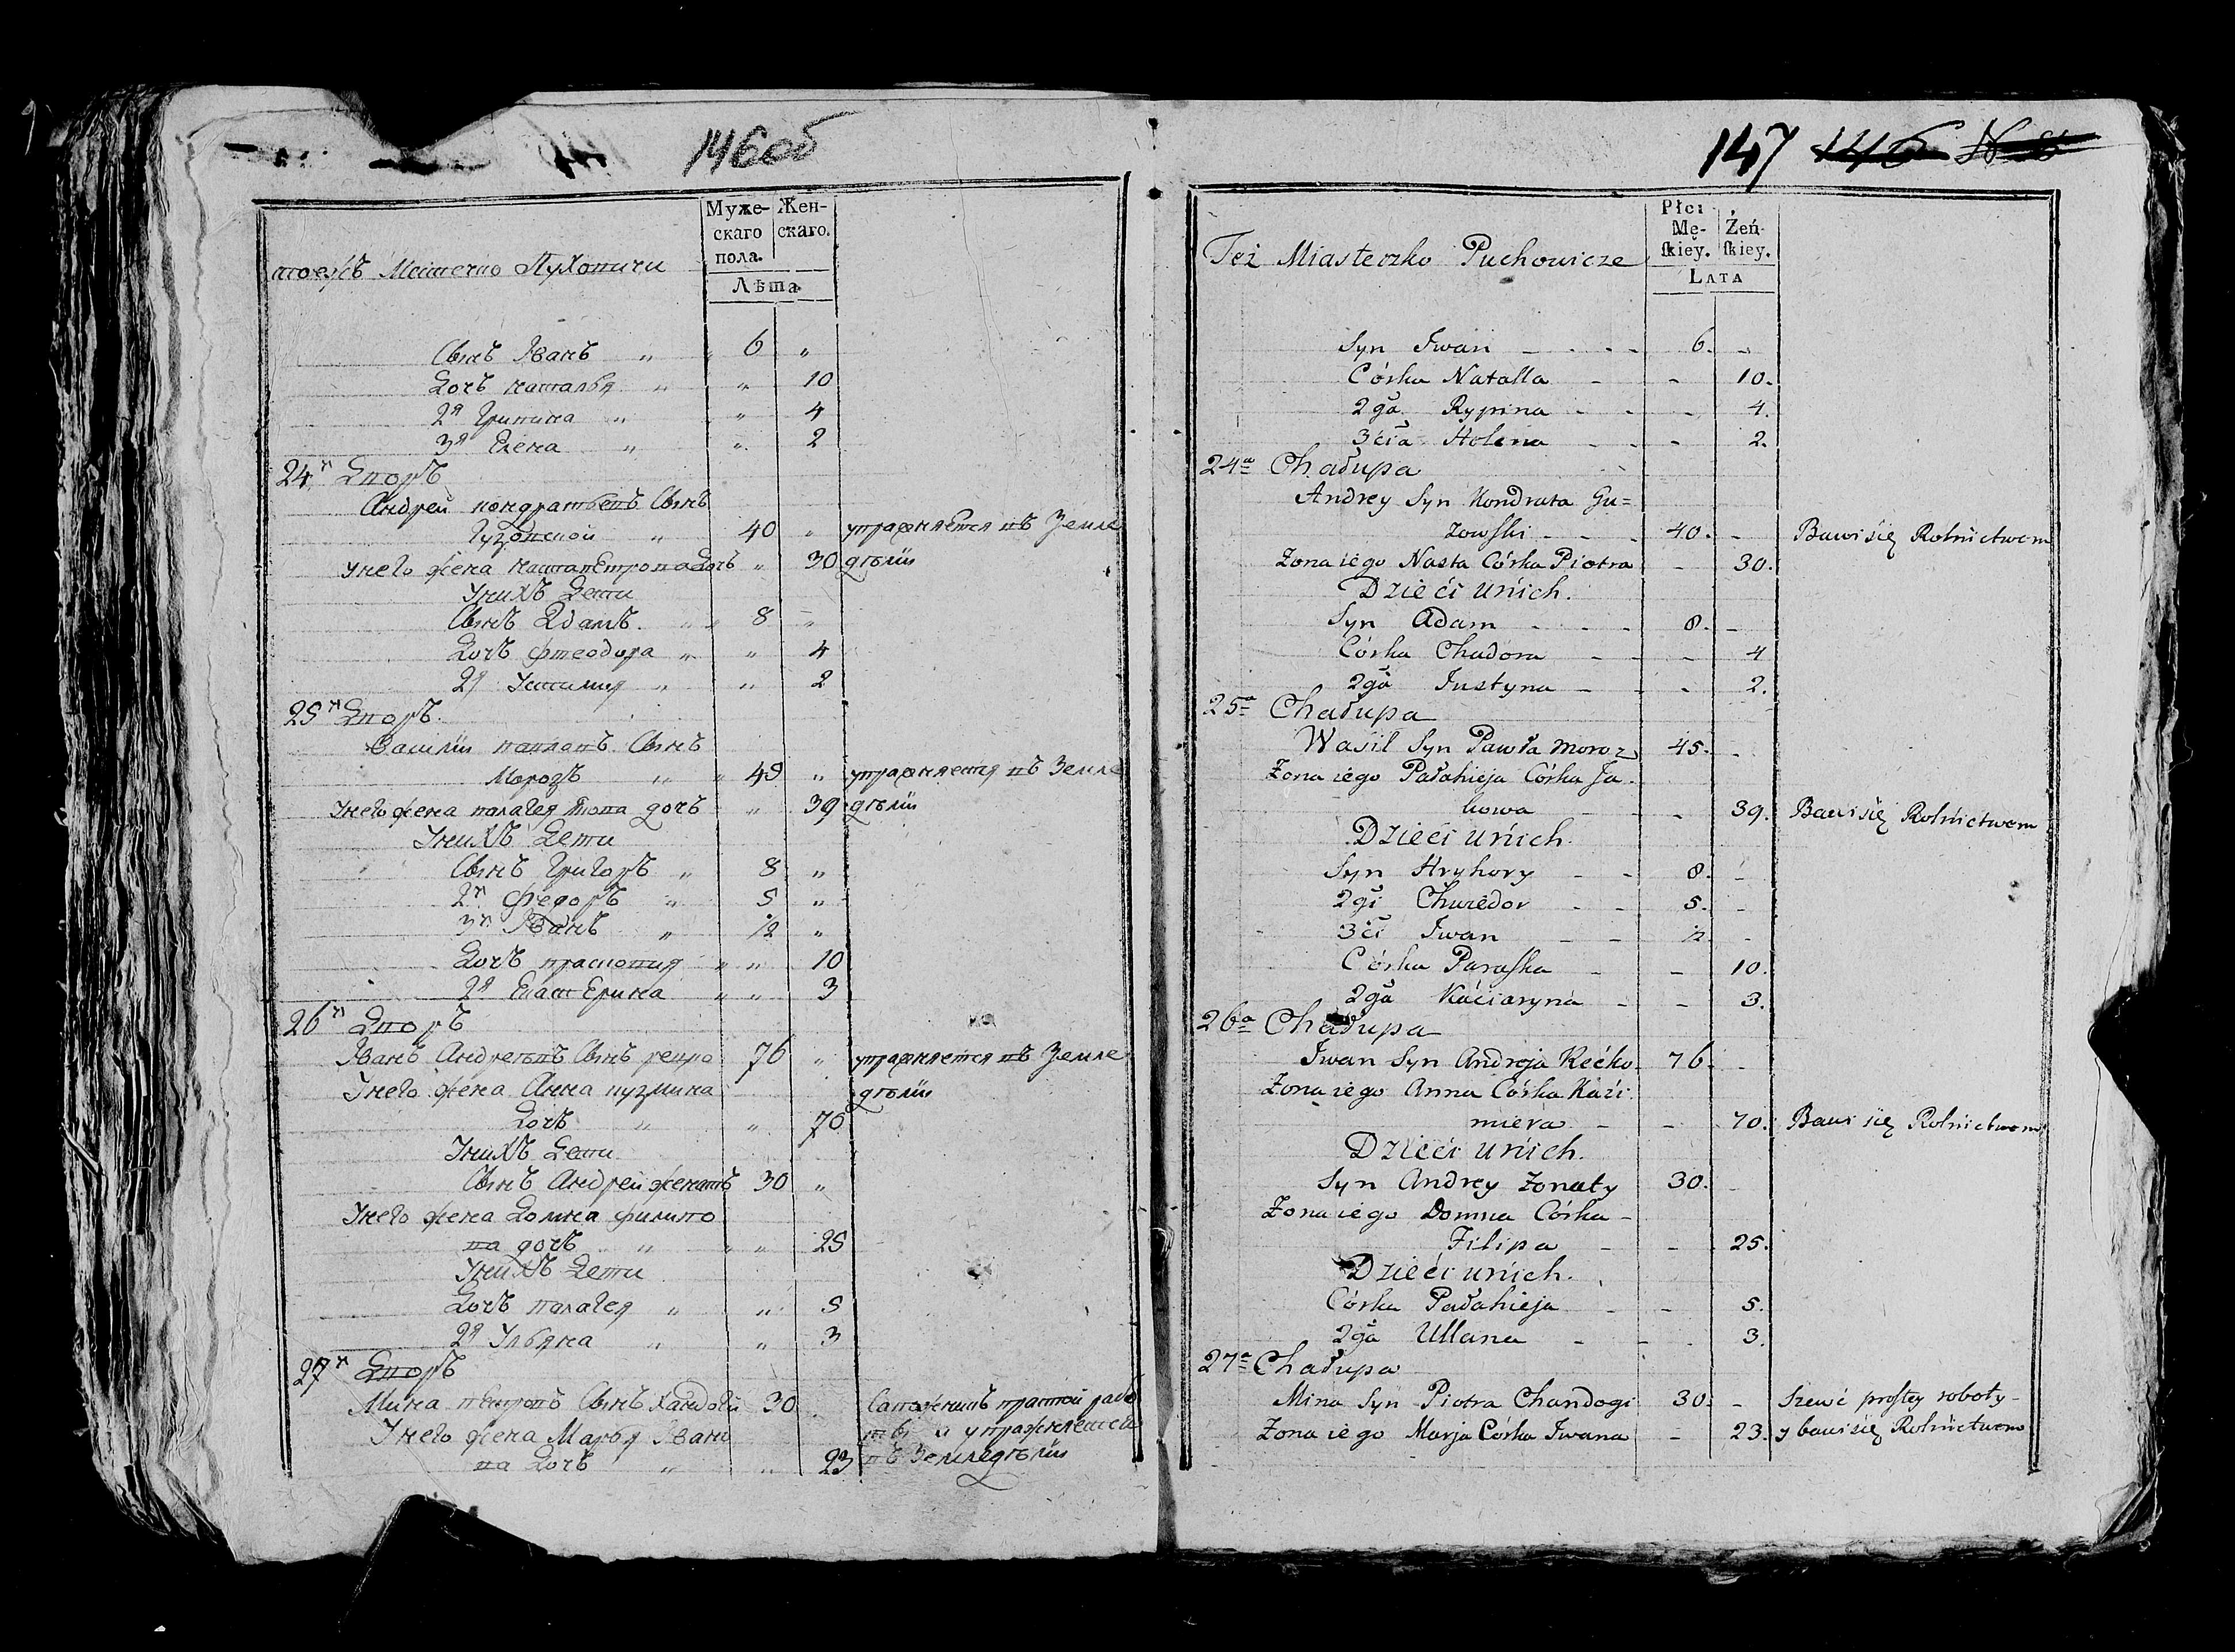 146об
Муже-
скаго
пола.
Жен-
скаго.
Лѣта.
тоежъ Местечко Пуховичи
Сынъ Иванъ " 6 "
Дочь Наталья " " 10
2я Грипина " " 4
3я Елена " " 2
24й Дворъ
Андрей Кондратьевъ Сынъ
Гузовской " 40 " упражняется въ Земле
унего жена Наста Петрова Дочь " 30 дѣліи
Унихъ Дети
Сынъ Адамъ. " 8 "
Дочь Фтеодора " " 4
2я Устимия " " 2
25й Дворъ.
Василій Павловъ Сынъ
Морозъ " 45 " упражняется въ Земле
Унего жена Палагея Якова дочь " 39 дѣліи
Унихъ Дети
Сынъ Григоръ " 8 "
2й Федоръ " 5 "
3й Иванъ " ½ "
Дочь Прасковия " " 10
2я Екатерина " " 3
26й Дворъ
Иванъ Андреевъ Сынъ 76 " упражняется въ Земле
Унего жена Анна Кузмина дѣліи
Дочь " " 70
Унихъ Дети
Сынъ Андрей женатъ 30 "
Унего жена Домна Филипо
ва дочь " " 25
Унихъ Дети
Дочь Палагея " " 5
2я Ульяна " " 3
27й Дворъ
Мина Петровъ Сынъ Хандоги 30 " Сапожникъ простой рабо
Унего жена Марья Ивано ты и упражняется
ва Дочь " " 23 въ Земледѣліи
147 146
Płci
Mę-
skiey.
Żeń-
skiey.
LATA
Też Miasteczko Puchowicze
Syn Iwan - 6. -
Córka Natalla - - 10.
2ga Rypina - - 4.
3cia Holena - - 2.
24a Chałupa
Andrey Syn Kondrata Gu=
zowski - 40. - Bawi się Rolnictwem
Żona iego Nasta Córka Piotra - 30.
Dzieći unich.
Syn Adam - 8. -
Córka Chadora - - 4
2ga Justyna - - 2.
25a Chałupa
Wasil Syn Pawła Moroz 45. -
Żona iego Pałahieja Córka Ja-
kowa - - 39. Bawi się Rolnictwem
Dzieći unich.
Syn Hryhory - 8. -
2gi Chwiedor - 5. -
3ći Iwan - ½. -
Córka Paraska - - 10.
2ga Kaciaryna - - 3.
26a Chałupa
Iwan Syn Andreja Rećko 76. -
Żona iego Anna Córka Kazi-
miera - - 70. Bawi się Rolnictwem
Dzieći unich.
Syn Andrey żonaty 30. -
Żona iego Domna Córka -
Filipa - - 25.
Dzieći unich.
Córka Pałahieja - - 5.
2ga Ullana - - 3.
27a Chałupa
Mina Syn Piotra Chandogi 30. - Szewć prostey roboty
Żona iego Marja Córka Iwana - 23. y bawi się Rolnictwem